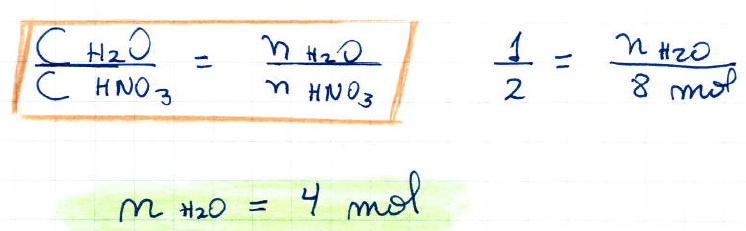 C H2O / C HNO3 = n H2O / n HNO3    1 / 2 = n H2O / 8 mol
n H2O = 4 mol